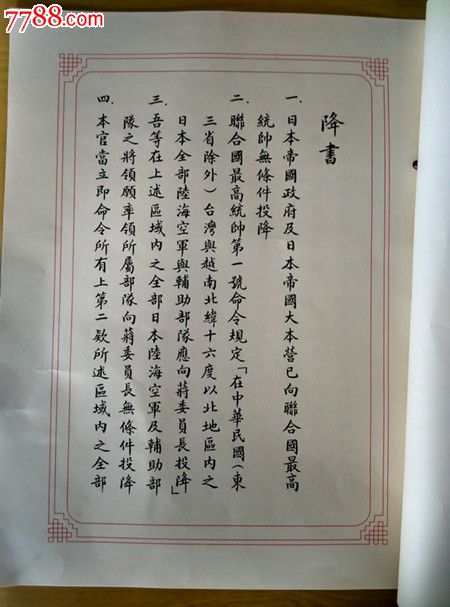 7788.com
降書
一、日本帝國政府及日本帝國大本營已向聯合國最高
統帥無條件投降
二、聯合國最高統帥第一號命令規定「在中華民國(東
三省除外)台灣與越南北緯十六度以北地區內之
日本全部陸海空軍與輔助部隊應向蔣委員長投降」
三、吾等在上述區域內之全部日本陸海空軍及輔助部
隊之將領願率領所屬部隊向蔣委員長無條件投降
四、本官當立即命令所有上第二款所述區域內之全部